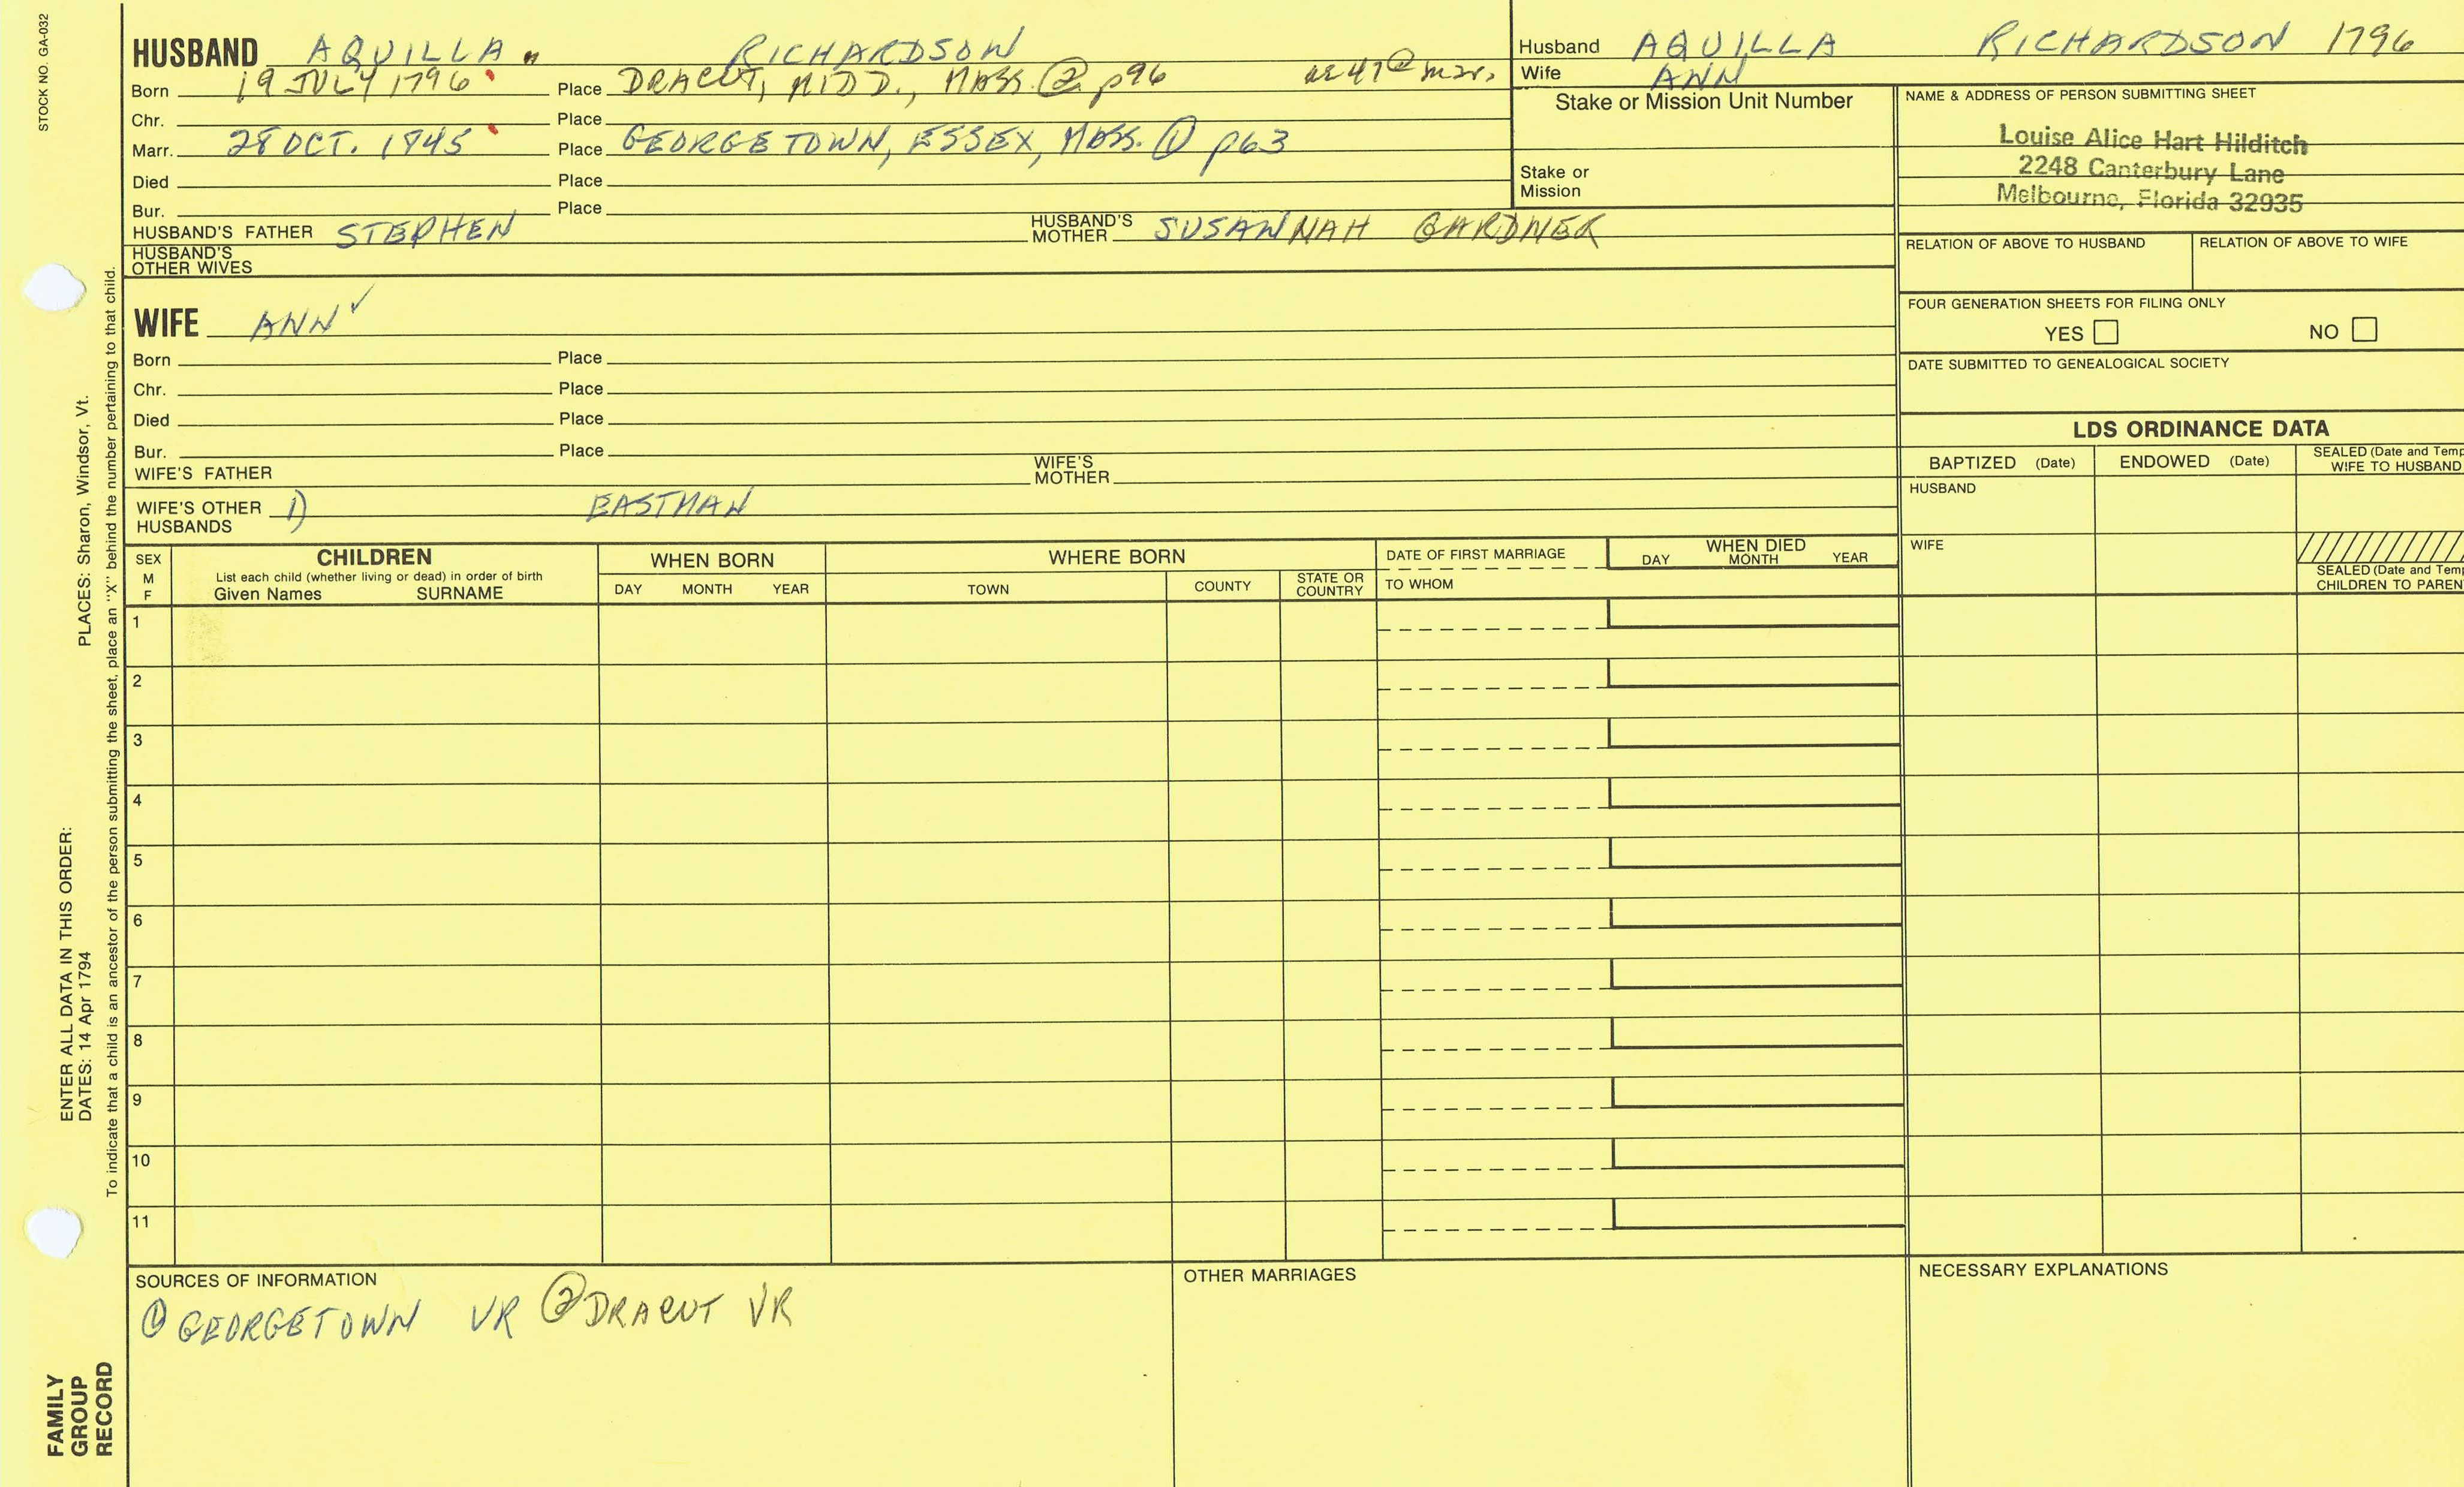 STOCK NO. GA-032
HUSBAND AQUILLA RICHARDSON
Born 19 JULY 1796 Place DRACUT, MIDD., MASS. ② p96 ae 47 @ mar.
Chr. Place
Marr. 28 OCT. 1845 Place GEORGETOWN, ESSEX, MASS. ① p63
Died Place
Bur. Place
HUSBAND'S FATHER STEPHEN HUSBAND'S MOTHER SUSANNAH GARDNER
HUSBAND'S OTHER WIVES
Husband AQUILLA RICHARDSON 1796
Wife ANN
Stake or Mission Unit Number
Stake or Mission
NAME & ADDRESS OF PERSON SUBMITTING SHEET
Louise Alice Hart Hilditch
2248 Canterbury Lane
Melbourne, Florida 32935
RELATION OF ABOVE TO HUSBAND RELATION OF ABOVE TO WIFE
FOUR GENERATION SHEETS FOR FILING ONLY
YES NO
DATE SUBMITTED TO GENEALOGICAL SOCIETY
WIFE ANN ✓
Born Place
Chr. Place
Died Place
Bur. Place
WIFE'S FATHER WIFE'S MOTHER
WIFE'S OTHER HUSBANDS 1) EASTMAN
LDS ORDINANCE DATA
BAPTIZED (Date) ENDOWED (Date) SEALED (Date and Temp
WIFE TO HUSBAND
HUSBAND
WIFE
SEALED (Date and Temp
CHILDREN TO PAREN
SEX
M
F
CHILDREN
List each child (whether living or dead) in order of birth
Given Names SURNAME
WHEN BORN
DAY MONTH YEAR
WHERE BORN
TOWN COUNTY STATE OR COUNTRY
DATE OF FIRST MARRIAGE
TO WHOM
WHEN DIED
DAY MONTH YEAR
1
2
3
4
5
6
7
8
9
10
11
SOURCES OF INFORMATION
① GEORGETOWN VR ② DRACUT VR
OTHER MARRIAGES
NECESSARY EXPLANATIONS
PLACES: Sharon, Windsor, Vt.
ENTER ALL DATA IN THIS ORDER:
DATES: 14 Apr 1794
To indicate that a child is an ancestor of the person submitting the sheet, place an "X" behind the number pertaining to that child.
FAMILY
GROUP
RECORD